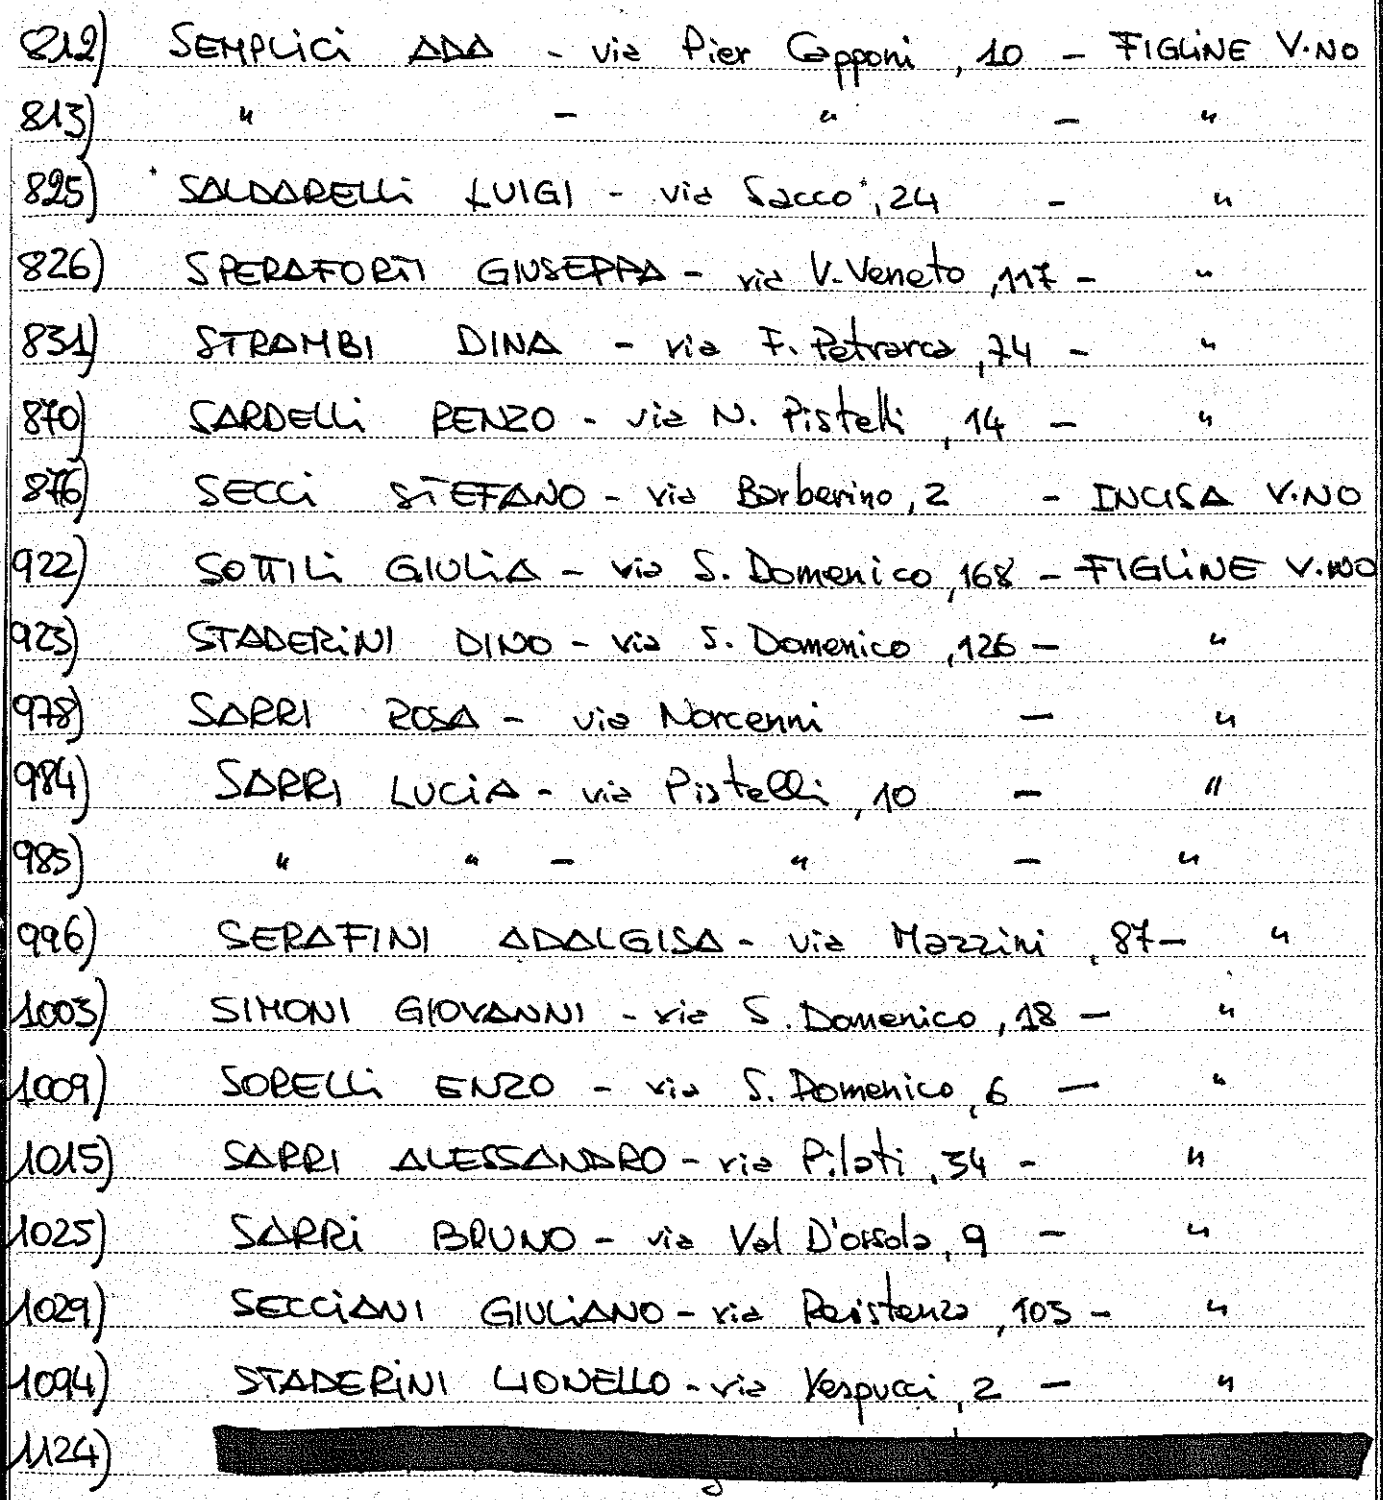 812) SEMPLICI ADA - via Pier Capponi, 10 - FIGLINE V.NO
813) " - " - "
825) SALDARELLI LUIGI - via Sacco, 24 - "
826) SPERAFORTI GIUSEPPA - via V. Veneto, 117 - "
831) STRAMBI DINA - via F. Petrarca, 74 - "
870) SARDELLI RENZO - via N. Pistelli, 14 - "
876) SECCI STEFANO - via Barberino, 2 - INCISA V.NO
922) SOTTILI GIULIA - via S. Domenico, 168 - FIGLINE V.NO
923) STADERINI DINO - via S. Domenico, 126 - "
978) SARRI ROSA - via Norcenni - "
984) SARRI LUCIA - via Pistelli, 10 - "
985) " " - " - "
996) SERAFINI ADALGISA - via Mazzini, 87 - "
1003) SIMONI GIOVANNI - via S. Domenico, 18 - "
1009) SORELLI ENZO - via S. Domenico, 6 - "
1015) SARRI ALESSANDRO - via Pilati, 34 - "
1025) SARRI BRUNO - via Val D'ossola, 9 - "
1029) SECCIANI GIULIANO - via Resistenza, 103 - "
1094) STADERINI LIONELLO - via Vespucci, 2 - "
1124)